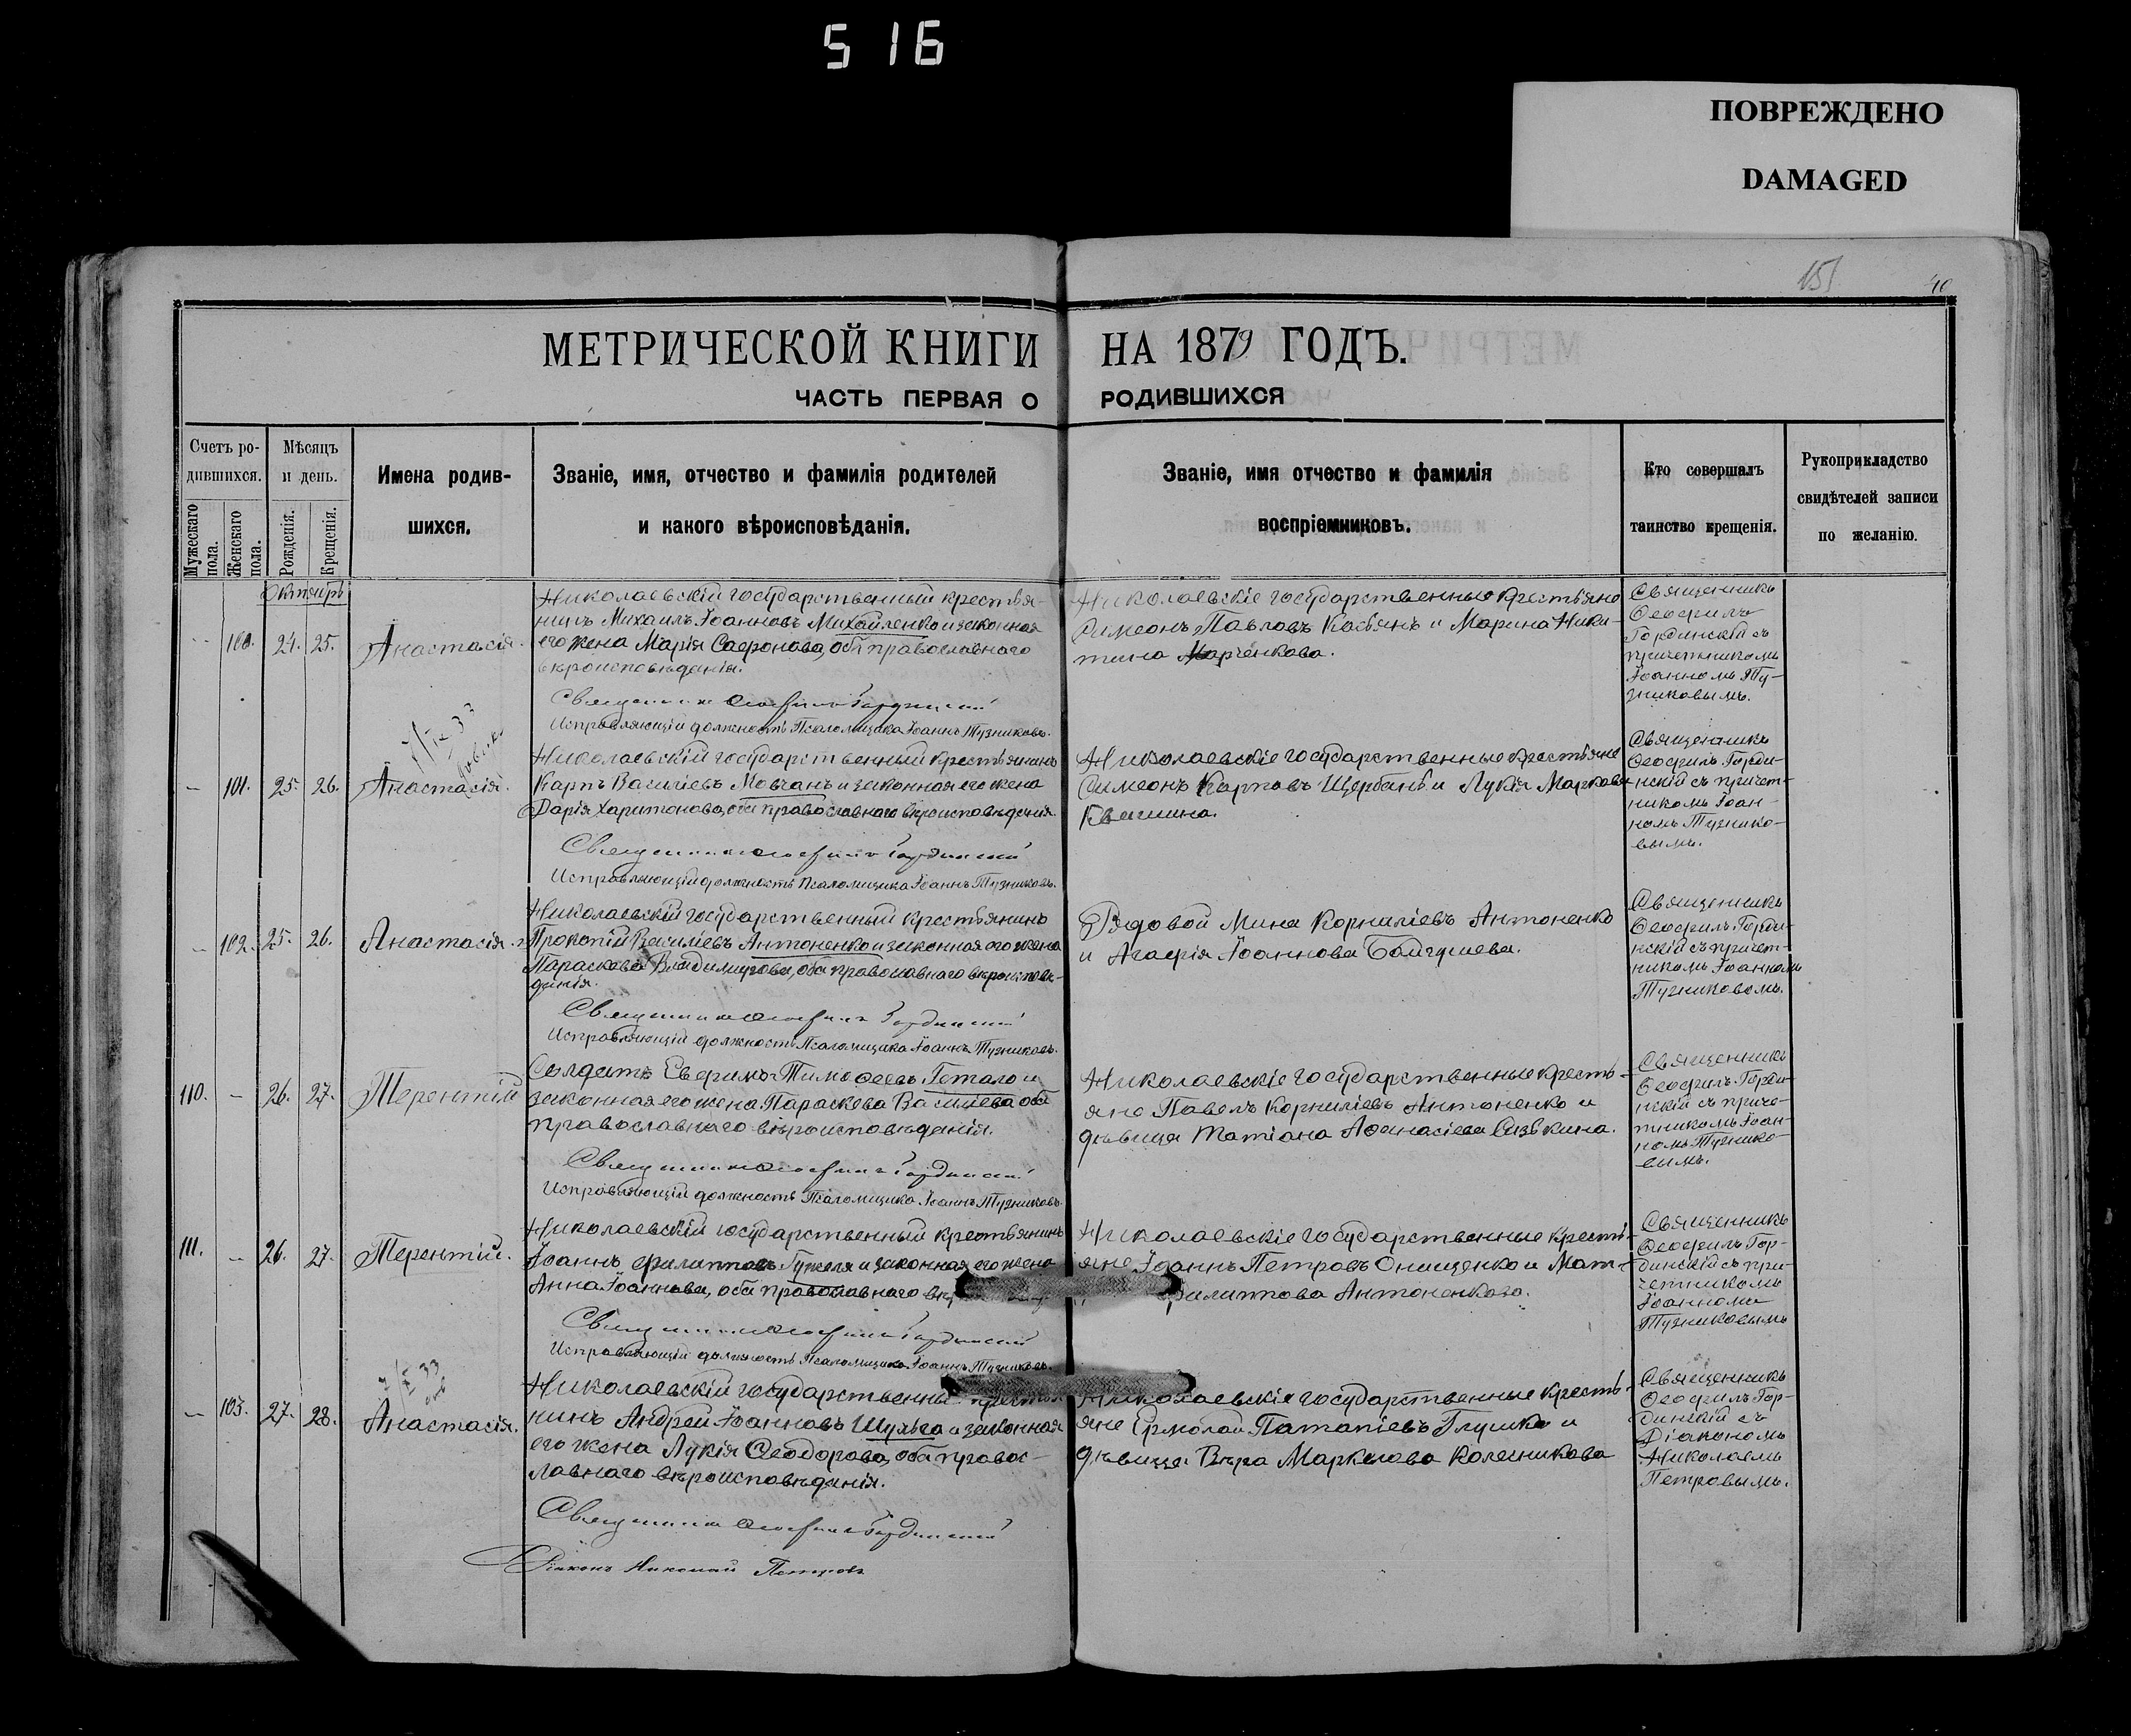 516
ПОВРЕЖДЕНО
DAMAGED
151
40
МЕТРИЧЕСКОЙ КНИГИ НА 1879 ГОДЪ.
ЧАСТЬ ПЕРВАЯ О РОДИВШИХСЯ
Счетъ ро-
дившихся.
Мужескаго пола.
Женскаго пола.
Мѣсяцъ
и день.
Рожденія.
Крещенія.
Имена родив-
шихся.
Званіе, имя, отчество и фамилія родителей
и какого вѣроисповѣданія.
Званіе, имя отчество и фамилія
воспріемниковъ.
Кто совершалъ
таинство крещенія.
Рукоприкладство
свидѣтелей записи
по желанію.
Октябрь
100. 24. 25. Анастасія.
Николаевскій государственный крестья-
нинъ Михаилъ Іоанновъ Михайленко и законная
его жена Марія Сафронова, оба православнаго
вѣроисповѣданія.
Священникъ Ѳеофилъ Гординскій
Исправляющій должность Псаломщика Іоаннъ Тузниковъ.
Николаевскіе государственные крестьяне
Симеонъ Павловъ Касьянъ и Марина Ники-
тина Марченкова.
Священникъ
Ѳеофилъ
Гординскій съ
причетникомъ
Іоанномъ Ту-
зниковымъ.
101. 25. 26. Анастасія.
Николаевскій государственный крестьянинъ
Карпъ Василіевъ Мовчанъ и законная его жена
Дарія Харитонова, оба православнаго вѣроисповѣданія.
Священникъ Ѳеофилъ Гординскій
Исправляющій должность Псаломщика Іоаннъ Тузниковъ.
Николаевскіе государственные крестьяне
Симеонъ Карповъ Щербань и Лукія Маркова
Квашина.
Священникъ
Ѳеофилъ Горди-
нскій съ причет-
никомъ Іоан-
номъ Тузнико-
вымъ.
102. 25. 26. Анастасія.
Николаевскій государственный крестьянинъ
Прокопій Василіевъ Антоненко и законная его жена
Параскева Владимирова, оба православнаго вѣроисповѣ-
данія.
Священникъ Ѳеофилъ Гординскій
Исправляющій должность Псаломщика Іоаннъ Тузниковъ.
Рядовой Мина Корниліевъ Антоненко
и Агафія Іоаннова
Священникъ
Ѳеофилъ Горди-
нскій съ причет-
никомъ Іоанномъ
Тузниковомъ.
110. – 26. 27. Терентій
Солдатъ Евфимъ Тимоѳеевъ Гетало и
законная его жена Параскева Василіева оба
православнаго вѣроисповѣданія.
Священникъ Ѳеофилъ Гординскій
Исправляющій должность Псаломщика Іоаннъ Тузниковъ.
Николаевскіе государственные кресть-
яне Павелъ Корниліевъ Антоненко и
дѣвица Татіана Аѳанасіева
Священникъ
Ѳеофилъ Горди-
нскій съ приче-
тникомъ Іоан-
номъ Тузнико-
вымъ.
111. – 26. 27. Терентій.
Николаевскій государственный крестьянинъ
Іоаннъ Филипповъ и законная его жена
Анна Іоаннова, оба православнаго
Священникъ Ѳеофилъ Гординскій
Исправляющій должность Псаломщика Іоаннъ Тузниковъ.
Николаевскіе государственные кресть-
яне Іоаннъ Петровъ Онищенко и
Филиппова Антоненкова.
Священникъ
Ѳеофилъ Гор-
динскій съ при-
четникомъ
Іоанномъ
Тузниковымъ
103. 27. 28. Анастасія.
Николаевскій государственный крестья-
нинъ Андрей Іоанновъ Шульга и законная
его жена Лукія Ѳеодорова, оба правос-
лавнаго вѣроисповѣданія.
Священникъ Ѳеофилъ Гординскій
Діаконъ Николай Петровъ
Николаевскіе государственные кресть-
яне Ермолай Патапіевъ Глушко и
дѣвица Вѣра Маркелова Колесникова
Священникъ
Ѳеофилъ Гор-
динскій съ
Діакономъ
Николаемъ
Петровымъ.